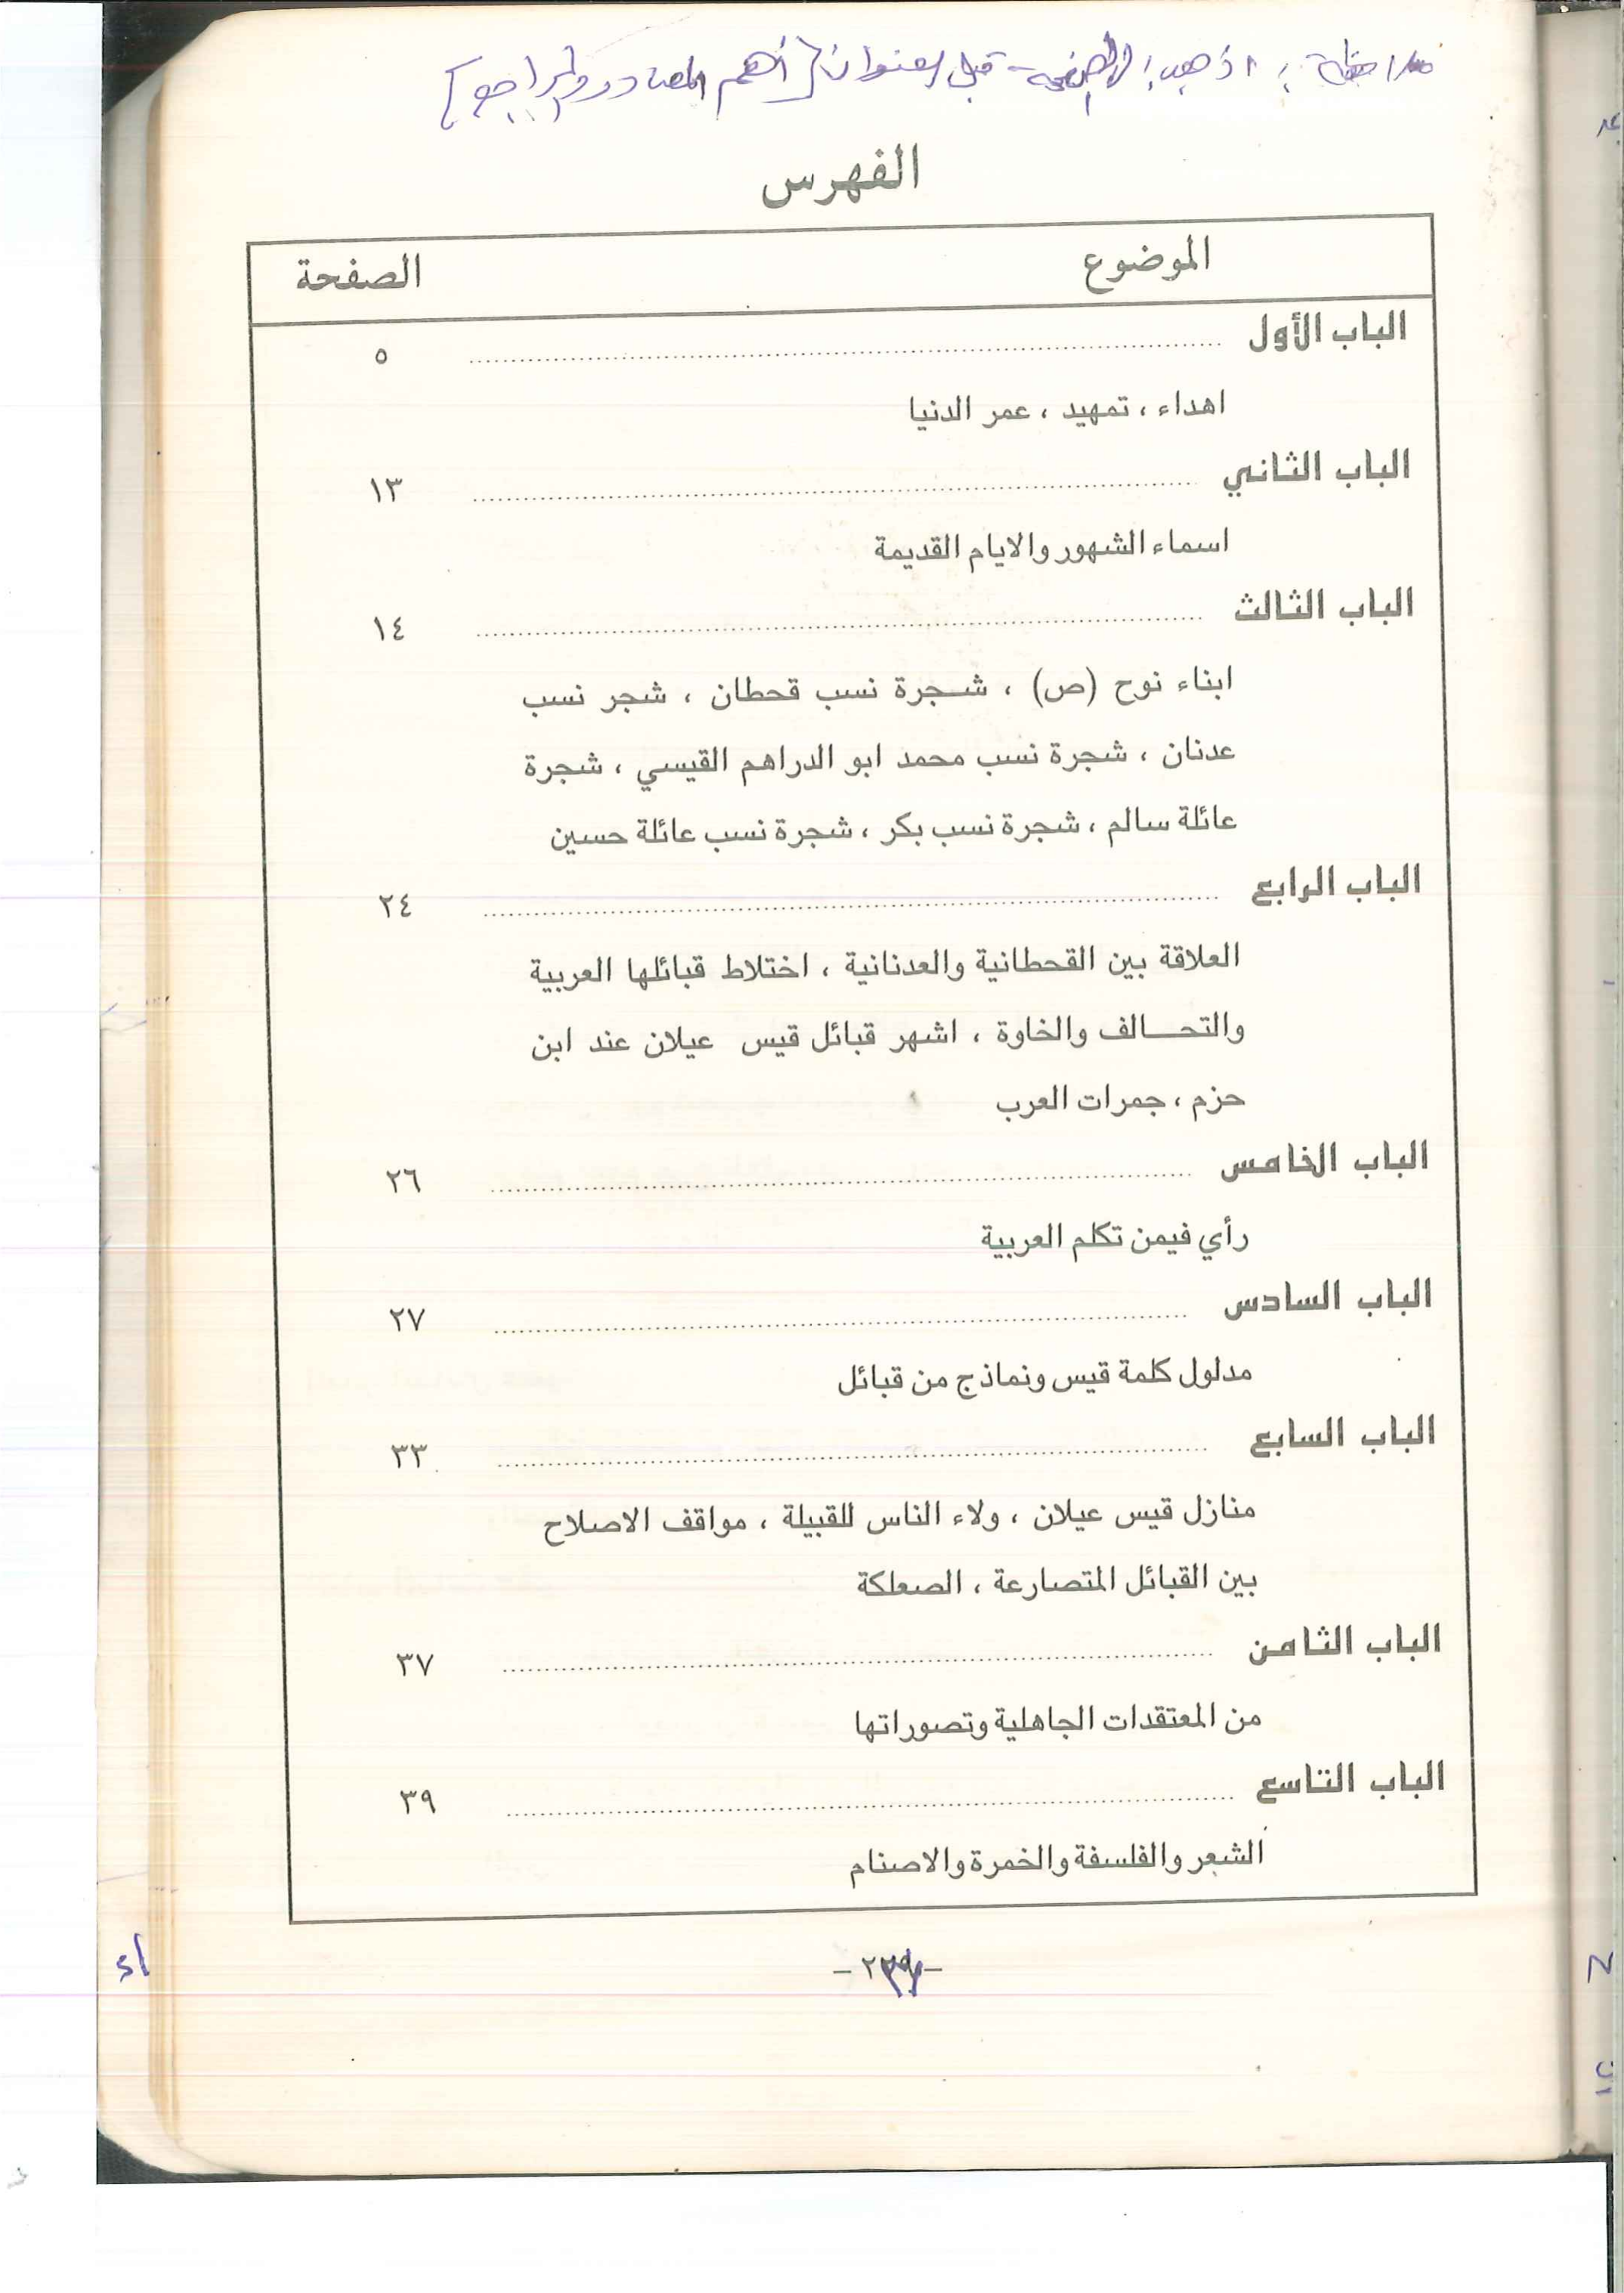 ملاحظة : اذهب الصفحة - قبل العنوان [أهم المصادر والمراجع]
الفهرس
الموضوع الصفحة
الباب الأول ٥
اهداء ، تمهيد ، عمر الدنيا
الباب الثاني ١٣
اسماء الشهور والايام القديمة
الباب الثالث ١٤
ابناء نوح (ص) ، شجرة نسب قحطان ، شجر نسب
عدنان ، شجرة نسب محمد ابو الدراهم القيسي ، شجرة
عائلة سالم ، شجرة نسب بكر ، شجرة نسب عائلة حسين
الباب الرابع ٢٤
العلاقة بين القحطانية والعدنانية ، اختلاط قبائلها العربية
والتحالف والخاوة ، اشهر قبائل قيس عيلان عند ابن
حزم ، جمرات العرب
الباب الخامس ٢٦
رأي فيمن تكلم العربية
الباب السادس ٢٧
مدلول كلمة قيس ونماذج من قبائل
الباب السابع ٣٣
منازل قيس عيلان ، ولاء الناس للقبيلة ، مواقف الاصلاح
بين القبائل المتصارعة ، الصعلكة
الباب الثامن ٣٧
من المعتقدات الجاهلية وتصوراتها
الباب التاسع ٣٩
الشعر والفلسفة والخمرة والاصنام